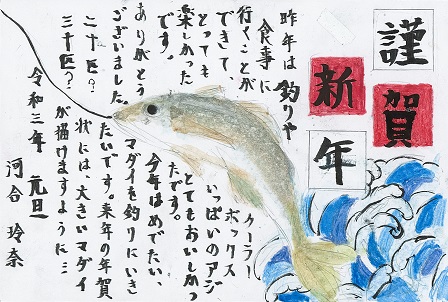 謹賀
新年
昨年は釣りや
食事に
行くことが
できて、
とっても
楽しかった
です。
ありがとう
ございました。
二十匹?
三十匹?
クーラー
ボックス
いっぱいのアジ
とてもおいしかっ
たです。
今年はめでたい、
マダイを釣りにいき
たいです。来年の年賀
状には、大きいマダイ
が描けますように…
令和三年 元旦
河合 玲奈